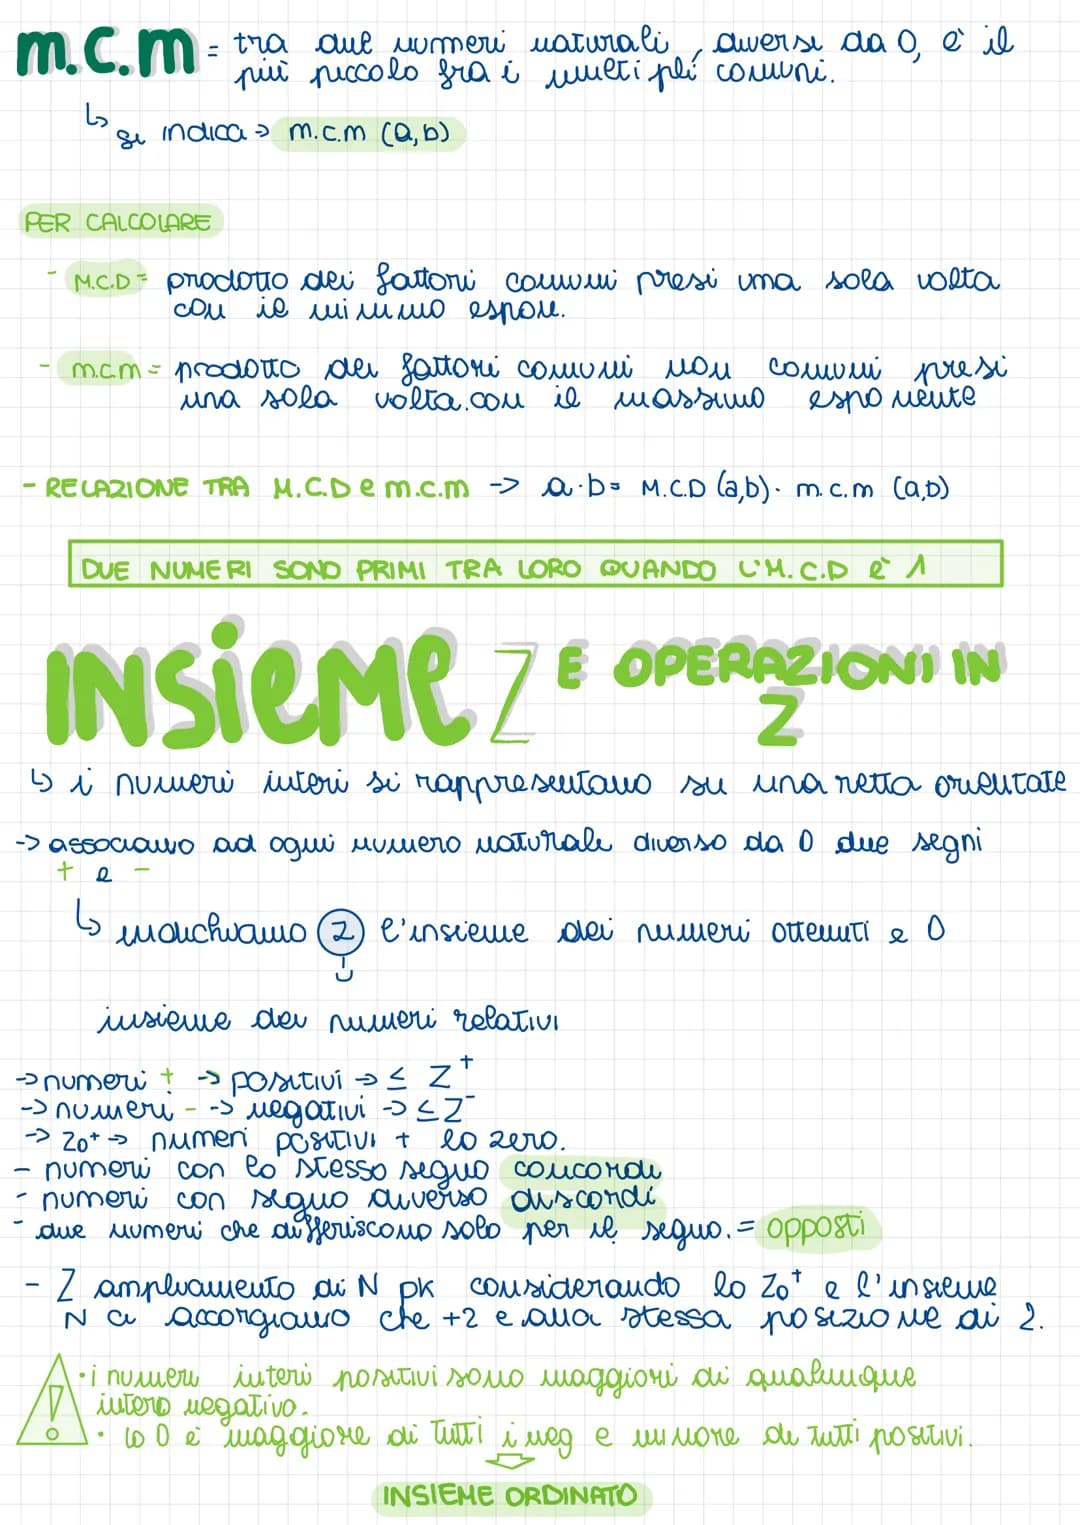 m.c.m = tra due numeri naturali, diversi da 0, è il
più piccolo fra i multipli comuni.
↳ si indica → m.c.m (a,b)
PER CALCOLARE
- M.C.D = prodotto dei fattori comuni presi una sola volta
con il minimo espon.
- m.c.m = prodotto dei fattori comuni non comuni presi
una sola volta.con il massimo esponente
- RELAZIONE TRA M.C.D e m.c.m -> a·b= M.C.D (a,b)· m.c.m (a,b)
DUE NUMERI SONO PRIMI TRA LORO QUANDO L'M.C.D è 1
INSIEME Z E OPERAZIONI IN
Z
↳ i numeri interi si rappresentano su una retta orientate
-> associamo ad ogni numero naturale diverso da 0 due segni
+ e -
↳ indichiamo Z l'insieme dei numeri ottenuti e 0
insieme dei numeri relativi
-> numeri + -> positivi -> ≤ Z⁺
-> numeri - -> negativi -> ≤ Z⁻
-> Z0⁺ -> numeri positivi + lo zero.
- numeri con lo stesso segno concordi
- numeri con segno diverso discordi
- due numeri che differiscono solo per il segno. = opposti
- Z ampliamento di N pk considerando lo Z0⁺ e l'insieme
N ci accorgiamo che +2 e alla stessa posizione di 2.
! • i numeri interi positivi sono maggiori di qualunque
intero negativo.
• lo 0 è maggiore di tutti i neg e minore di tutti positivi.
INSIEME ORDINATO